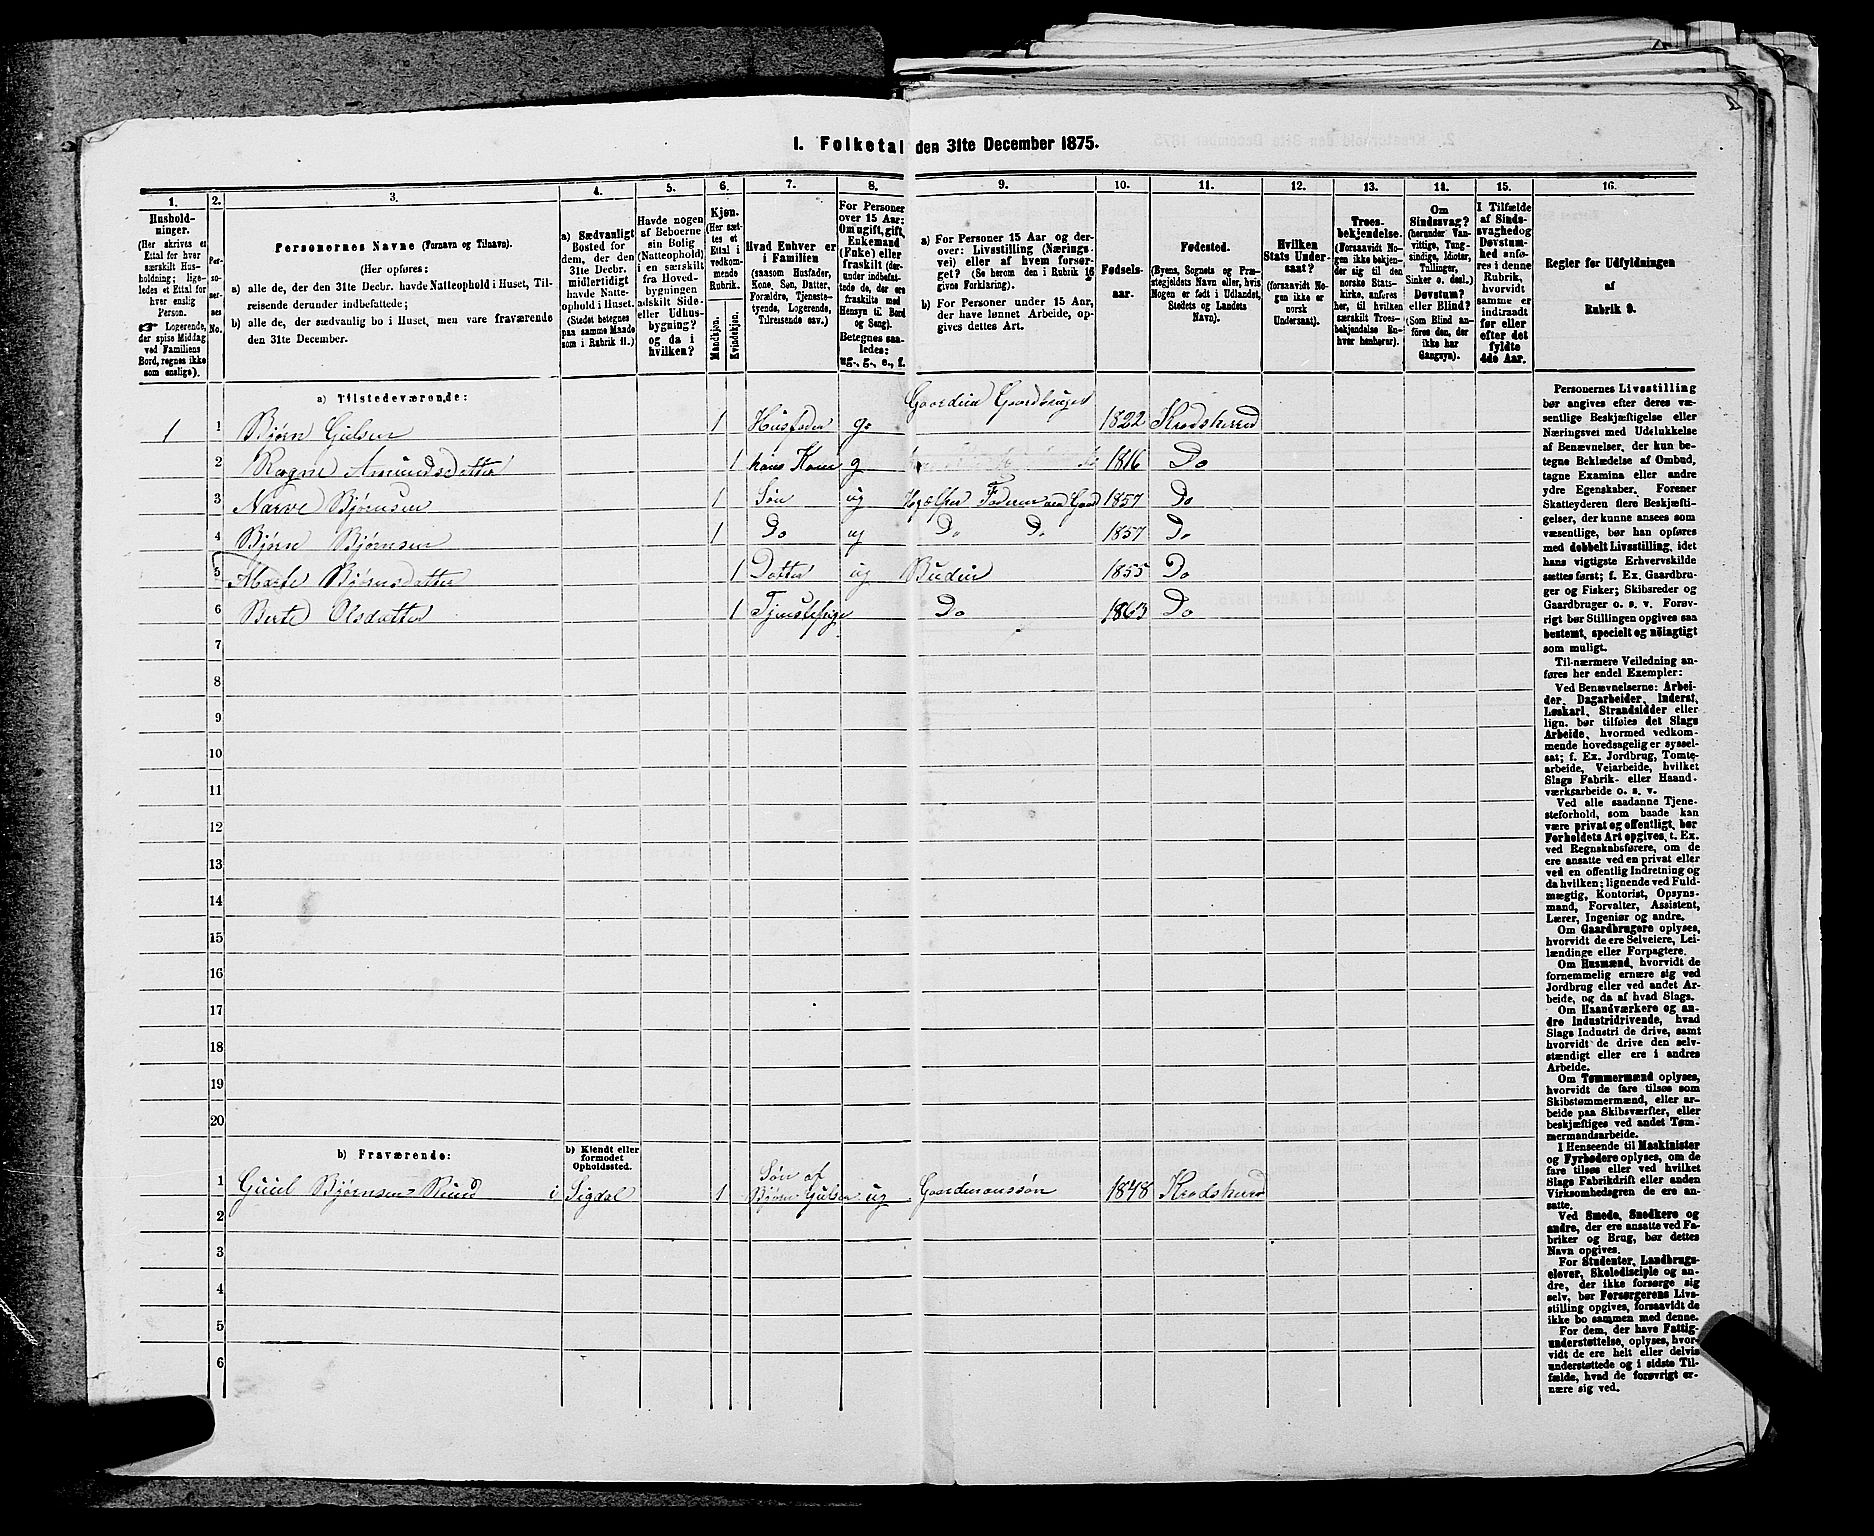 I. Folketal den 31te December 1875.
1. 2. 3. 4. 5. 6. 7. 8. 9. 10. 11. 12. 13. 14. 15. 16.
Husholdninger.
(Her skrives et
Ettal for hver
særskilt Husholdning;
ligeledes et Ettal for
hver enslig
Person.
☞ Logerende,
der spise Middag
ved Familiens
Bord, regnes ikke
som enslige).
Personernes No.
Personernes Navne (Fornavn og Tilnavn).
(Her opføres:
a) alle de, der den 31te Decbr. havde Natteophold i Huset, Tilreisende derunder indbefattede;
b) alle de, der sædvanlig bo i Huset, men vare fraværende
den 31te December.
a) Sædvanligt
Bosted for
dem, der den
31te Decbr.
midlertidigt
havde Natteophold i Huset.
(Stedet betegnes
paa samme Maade
som i Rubrik 11.)
Havde nogen
af Beboerne
sin Bolig
(Natteophold)
i en særskilt
fra Hovedbygningen
adskilt Side-
eller Udhusbygning?
og da i
hvilken?
Kjøn.
(Her sættes et
Ettal i
vedkommende
Rubrik.
Mandkjøn.
Kvindekjøn.
Hvad Enhver er
i Familien
(saasom Husfader,
Kone, Søn, Datter,
Forældre, Tjenestetyende, Logerende,
Tilreisende osv.)
For Personer
over 15 Aar:
Om ugift, gift,
Enkemand
(Enke) eller
fraskilt (derunder indbefattede de, der ere
fraskilte med
Hensyn til Bord
og Seng).
Betegnes saaledes:
ug., g., e., f.
a) For Personer 15 Aar og derover: Livsstilling (Næringsvei) eller af hvem forsørget? (Se herom den i Rubrik 16
givne Forklaring).
b) For Personer under 15 Aar,
der have lønnet Arbeide, opgives dettes Art.
Fødselsaar.
Fødested.
(Byens, Sognets og Præstegjeldets Navn eller, hvis
Nogen er født i Udlandet,
Stedets og Landets
Navn).
Hvilken
Stats Undersaat?
(forsaavidt Nogen ikke er
norsk
Undersaat).
Troesbekjendelse.
(Forsaavidt Nogen ikke bekjender sig til den
norske Statskirke, anføres
her, til hvilken
særskilt Troesbekjendelse Enhver henhører).
Om
Sindssvag?
(herunder Vanvittige, Tungsindige, Idioter,
Tullinger,
Sinker o. desl.)
Døvstum?
eller Blind?
(Som Blind anføres den, der
ikke har
Gangsyn).
I Tilfælde
af Sindssvaghed og
Døvstumhed anføres i denne
Rubrik,
hvorvidt
samme er
indtraadt
før eller
efter det
fyldte
4de Aar.
Regler for Udfyldningen
af
Rubrik 9.
a) Tilstedeværende:
1 1 Bjørn Gulsen 1 Husfader g. Gaardeier Gaardbruger 1822 Krødsherred
2 Ragne Amundsdatter 1 hans Kone g 1816 Do
3 Narve Bjørnsen 1 Søn ug 1857 Do
4 Bjørn Bjørnsen 1 Do ug Do Do 1857 Do
5 Marte Bjørnsdatter 1 Datter ug Budeie 1855 Do
6 Berte Olsdatter 1 Tjenestepige Do 1863 Do
7
8
9
10
11
12
13
14
15
16
17
18
19
20
b) Fraværende:
b) Kjendt eller
formodet
Opholdssted.
1 Guul Bjørnsen Ruud i Sigdal 1 Søn af
Bjørn Gulsen ug Gaardmanssøn 1848 Krødsherred
2
3
4
5
6
Personernes Livsstilling
bør angives efter deres væsentlige Beskjæftigelse eller
Næringsvei med Udelukkelse
af Benævnelser, der kun betegne Beklædelse af Ombud,
tagne Examina eller andre
ydre Egenskaber. Forener
Skatteyderen flere Beskjæftigelser, der kunne ansees som
væsentlige, bør han opføres
med dobbelt Livsstilling, idet
hans vigtigste Erhvervskilde
sættes først; f. Ex. Gaardbruger og Fisker; Skibsreder og
Gaardbruger o. s. v. Forøvrigt bør Stillingen opgives saa
bestemt, specielt og nöiagtigt
som muligt.
Til nærmere Veiledning anføres her endel Exempler:
Ved Benævnelserne: Arbeider, Dagarbeider, Inderst,
Løskarl, Strandsidder eller
lign. bør tilføies det Slags
Arbeide, hvormed vedkommende hovedsagelig er sysselsat; f. Ex. Jordbrug, Tomtearbeide, Veiarbeide, hvilket
Slags Fabrik- eller Haandværksarbeide o. s. v.
Ved alle saadanne Tjenesteforhold, som baade kan
være privat og offentligt, bør
Forholdets Art opgives, t. Ex.
ved Regnskabsførere, om de
ere ansatte ved en privat eller
ved en offentlig Indretning og
da hvilken; lignende ved Fuldmægtig, Kontorist, Opsynsmand, Forvalter, Assistent,
Lærer, Ingeniør og andre.
Om Gaardbrugere oplyses,
hvorvidt de ere Selveiere, Leilændinge eller Forpagtere.
Om Husmænd, hvorvidt de
fornemmelig ernære sig ved
Jordbrug eller ved andet Arbeide, og da af hvad Slags.
Om Haandværkere og andre Industridrivende, hvad
Slags Industri de drive, samt
hvorvidt de drive den selvstændigt eller ere i andres
Arbeide.
Om Tømmermænd oplyses,
hvorvidt de fare tilsøs som
Skibstømmermænd, eller arbeide paa Skibsværfter, eller
beskjæftiges ved andet Tømmermandsarbeide.
I Henseende til Maskinister
og Fyrbødere oplyses, om de
fare tilsøs eller ved hvilket
Slags Fabrikdrift eller anden
Virksomhedsgren de ere ansatte.
Ved Smede, Snedkere og
andre, der ere ansatte ved Fabriker og Brug, bør dettes
Navn opgives.
For Studenter, Landbrugselever, Skoledisciple og andre, der ikke forsørge sig
selv, bør Forsørgerens Livsstilling opgives, forsaavidt de
ikke bo sammen med denne.
For dem, der have Fattigunderstøttelse, oplyses, hvorvidt de ere helt eller delvis
understøttede og i sidste Tilfælde, hvad de forøvrigt ernære sig ved.